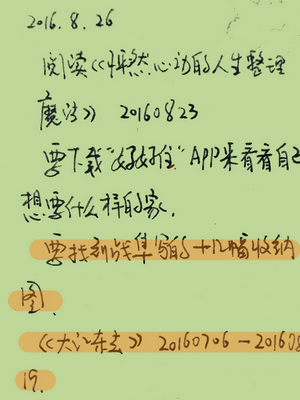 2016.8.26
阅读《怦然心动的人生整理
魔法》 20160823
要下载"好好住"APP来看看自己
想要什么样的家.
要找到战隼写的十几幅收纳
图.
《大江东去》 20160706-201608
19.